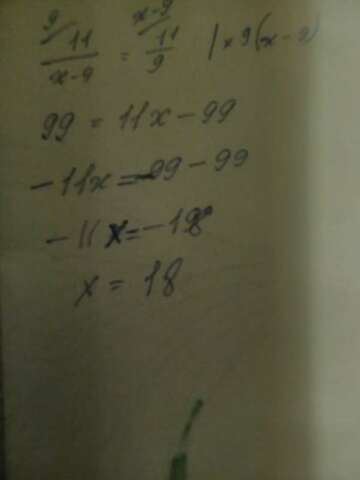 9/ 11/(x-9) = x-9/ 11/9 | × 9(x-9)
99 = 11x - 99
-11x = -99 - 99
-11x = -198
x = 18